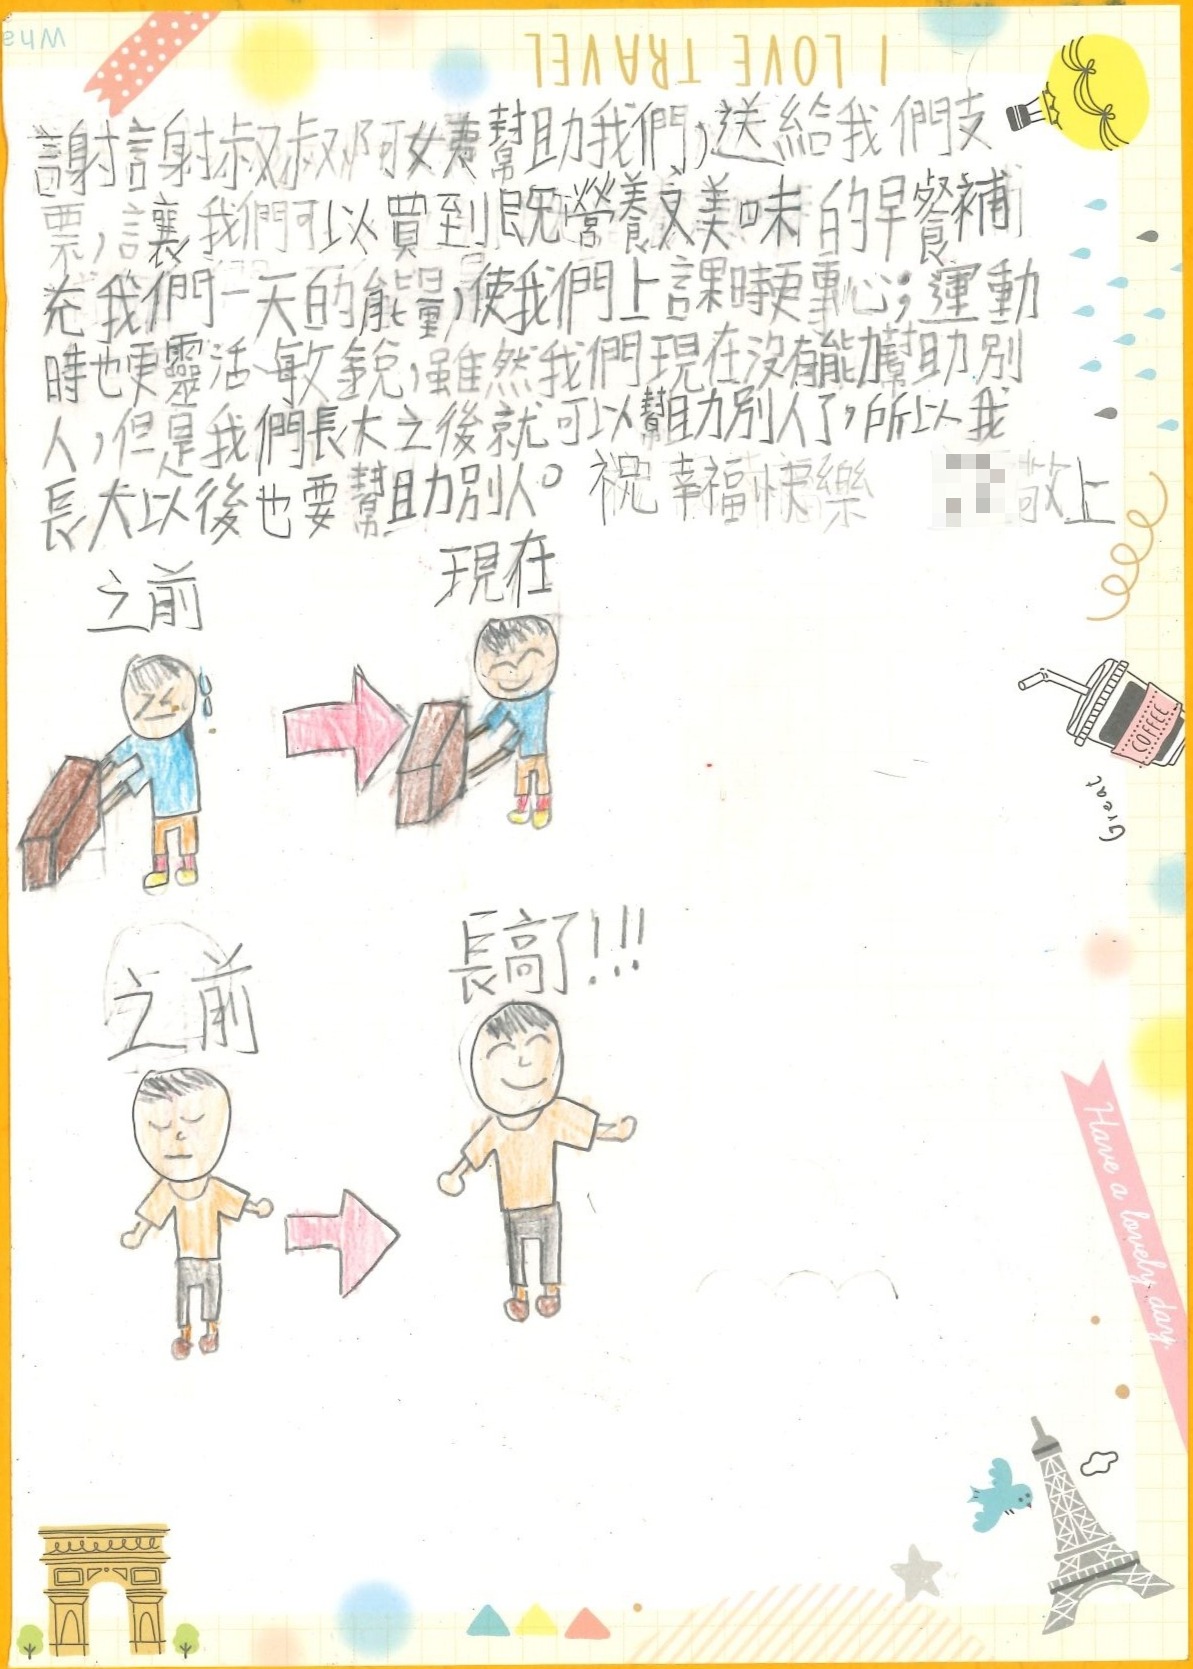 Wha
I LOVE TRAVEL
謝謝叔叔阿姨幫助我們,送給我們支
票,讓我們可以買到既營養又美味的早餐補
充我們一天的能量,使我們上課時更專心;運動
時也更靈活、敏銳,雖然我們現在沒有能力幫助別
人,但是我們長大之後就可以幫助別人了,所以我
長大以後也要幫助別人。祝幸福快樂 敬上
之前
現在
COFFEE
Great
之前
長高了!!!
Have a lovely day